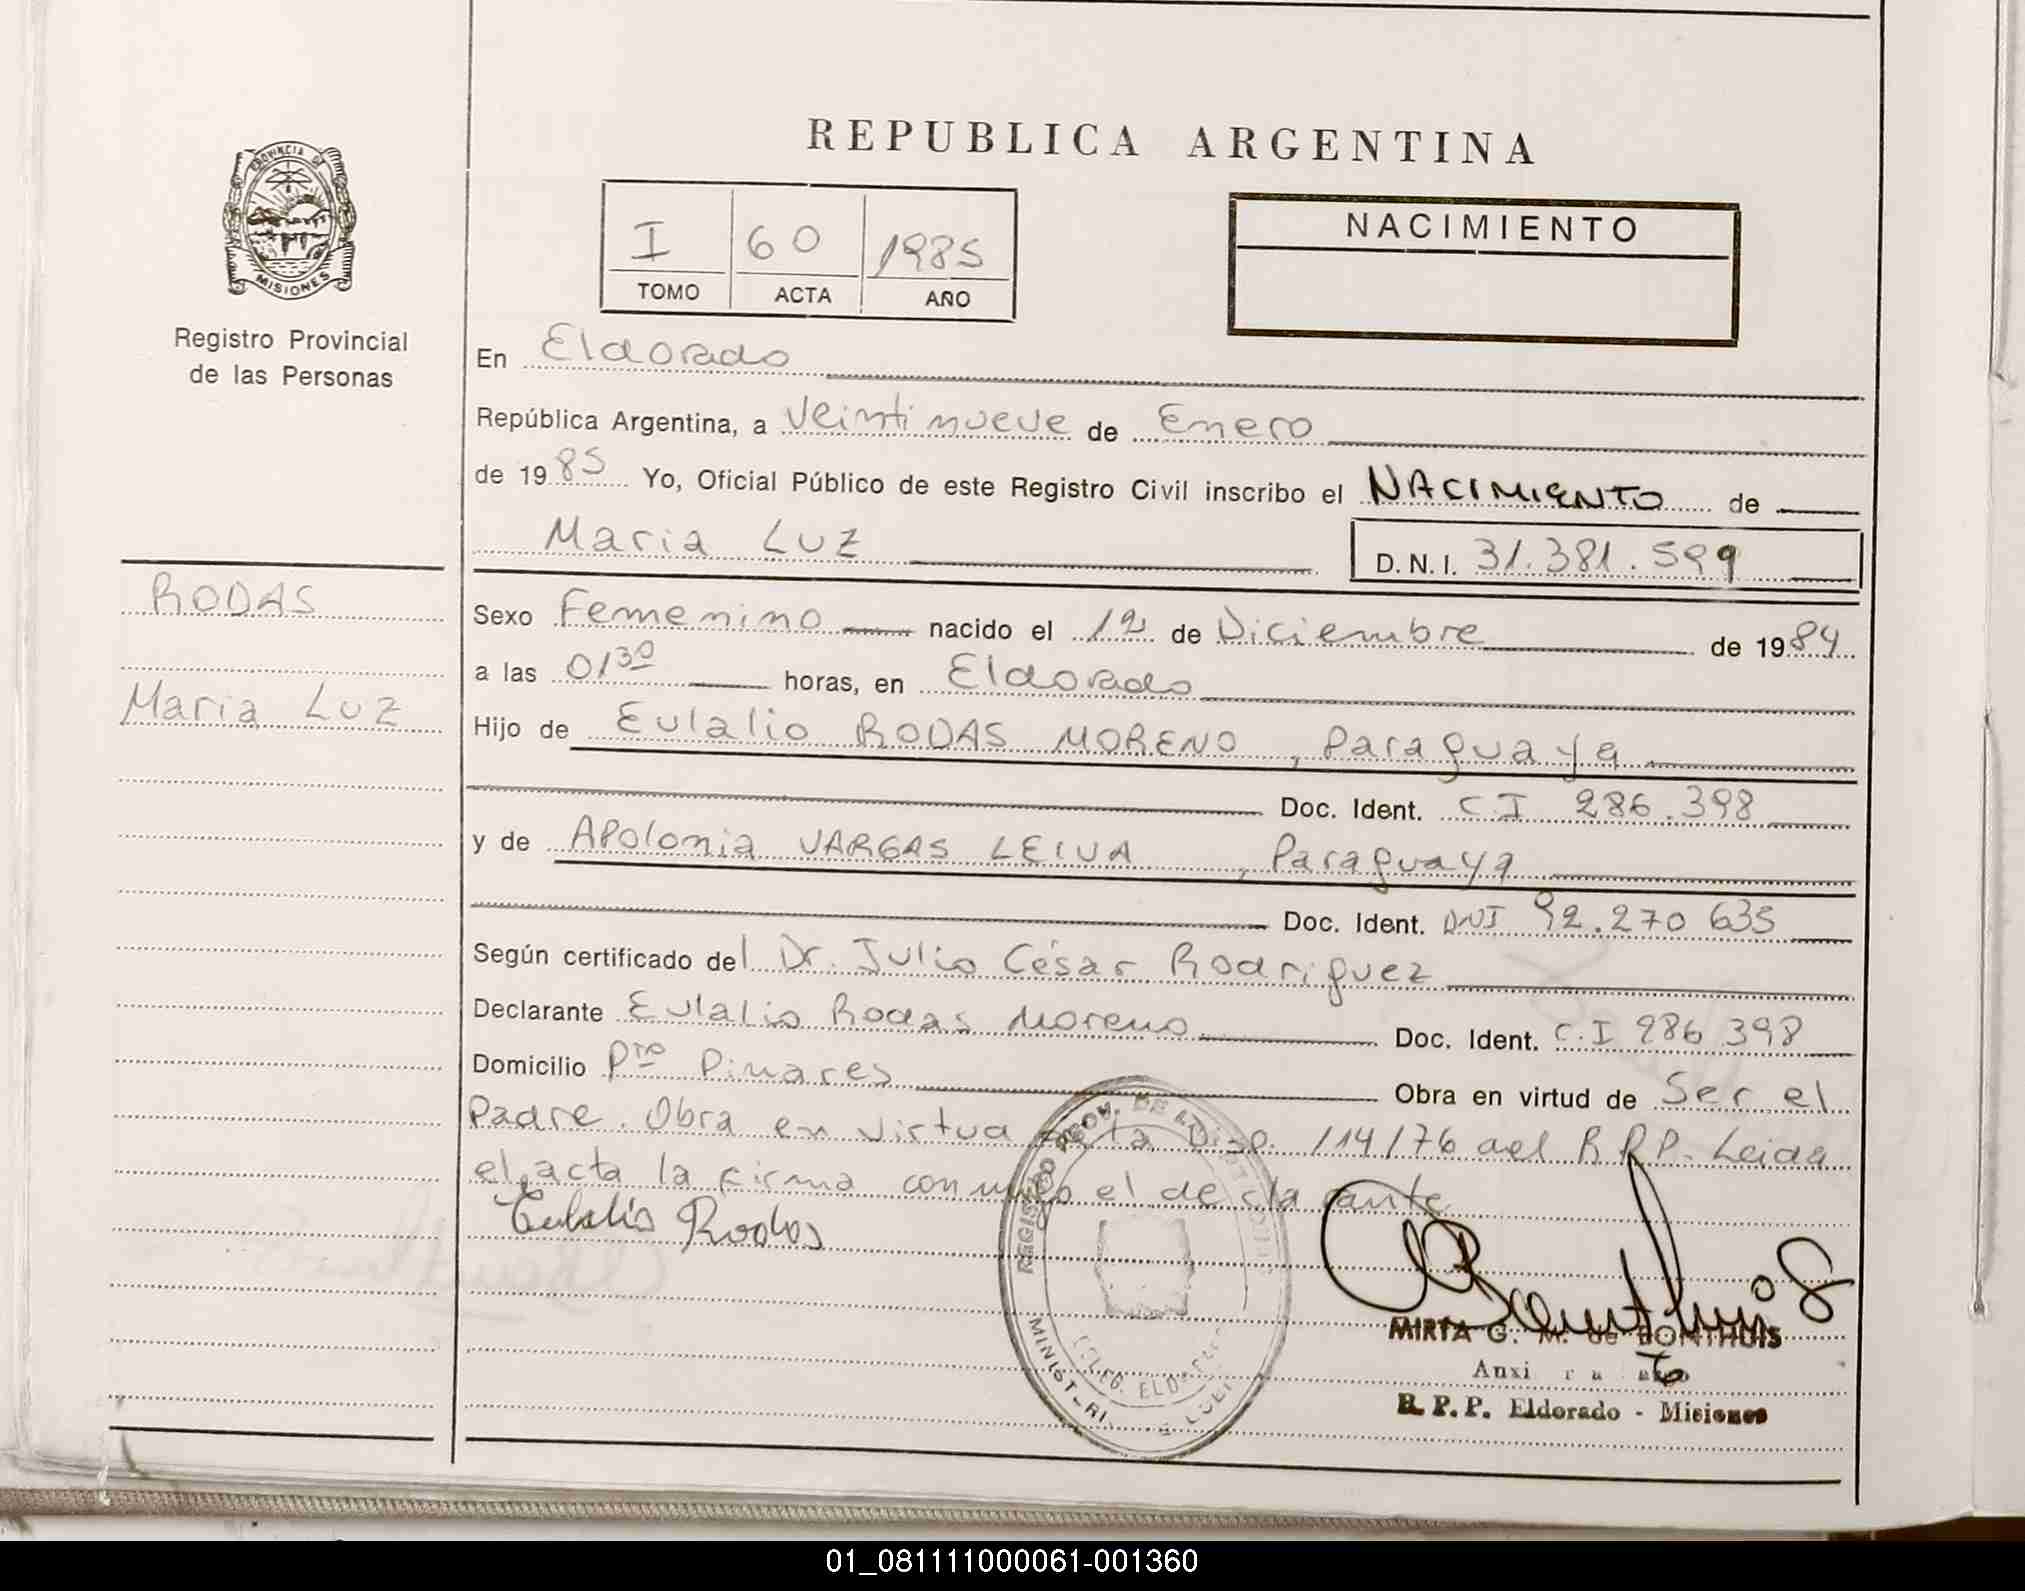 REPUBLICA ARGENTINA
PROVINCIA DE
MISIONES
Registro Provincial
de las Personas
I 60 1985
TOMO ACTA AÑO
NACIMIENTO
En Eldorado
República Argentina, a Veintinueve de Enero
de 1985 Yo, Oficial Público de este Registro Civil inscribo el NACIMIENTO de
Maria Luz D.N.I. 31.381.599
RODAS
Maria Luz
Sexo Femenino nacido el 12 de Diciembre de 1984
a las 01 30 horas, en Eldorado
Hijo de Eulalio RODAS MORENO, Paraguaya
Doc. Ident. C.I 286.398
y de Apolonia VARGAS LEIVA, Paraguaya
Doc. Ident. DNI 92.270 635
Según certificado del Dr. Julio César Rodriguez
Declarante Eulalio Rodas Moreno Doc. Ident. C.I 286 398
Domicilio Pto Pinares Obra en virtud de Ser el
Padre. Obra en virtud de la Disp. 114/76 del R.P.P. Leida
el acta la firma conmigo el declarante
Eulalio Rodas
REGISTRO PROV. DE
MINISTERI
DELEG. ELDORADO
MIRTA G. M. de BONTHUIS
R. P. P. Eldorado - Misiones
01_081111000061-001360